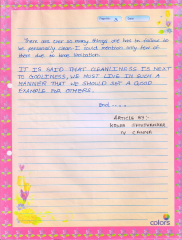 There are ever so many things are to follow as
we personally clean. I could mention only few of
them due to time limitation.
IT IS SAID THAT CLEANLINESS IS NEXT
TO GODLINESS, WE MUST LIVE IN SUCH A
MANNER THAT WE SHOULD SET A GOOD
EXAMPLE FOR OTHERS.
End
ARTICLE BY:-
colors